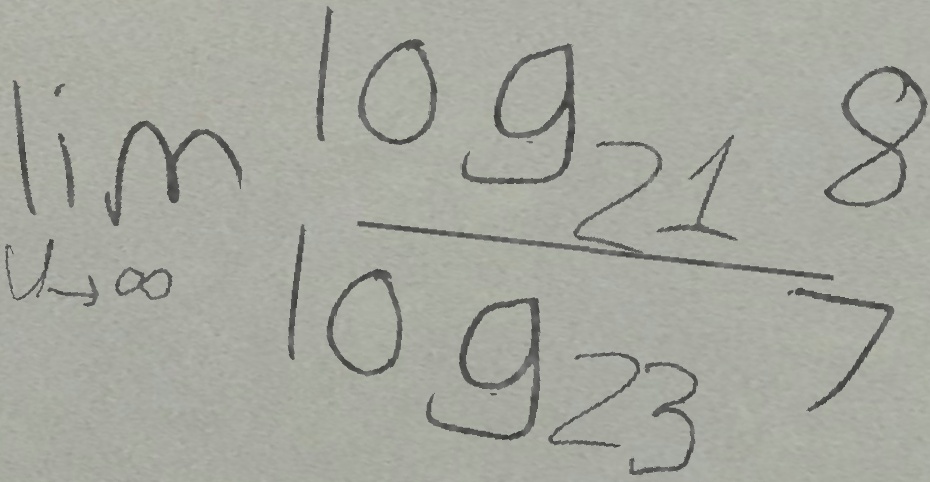 \lim_{v \to \infty} \frac{\log_{21} 8}{\log_{23} 7}